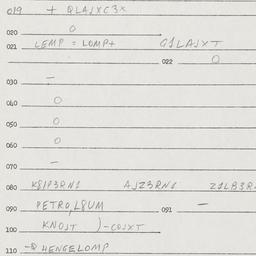 019 + QLAJXC3X
020 0
021 LEMP = LOMP+ G1LAJXT
022 0
030 –
040 0
050 0
060 0
070 –
080 K8IP3RN1 AJZ3RN1 Z1LB3R
090 PETROL8UM 091 –
100 KNOJT )-COJXT
110 HENGELOMP